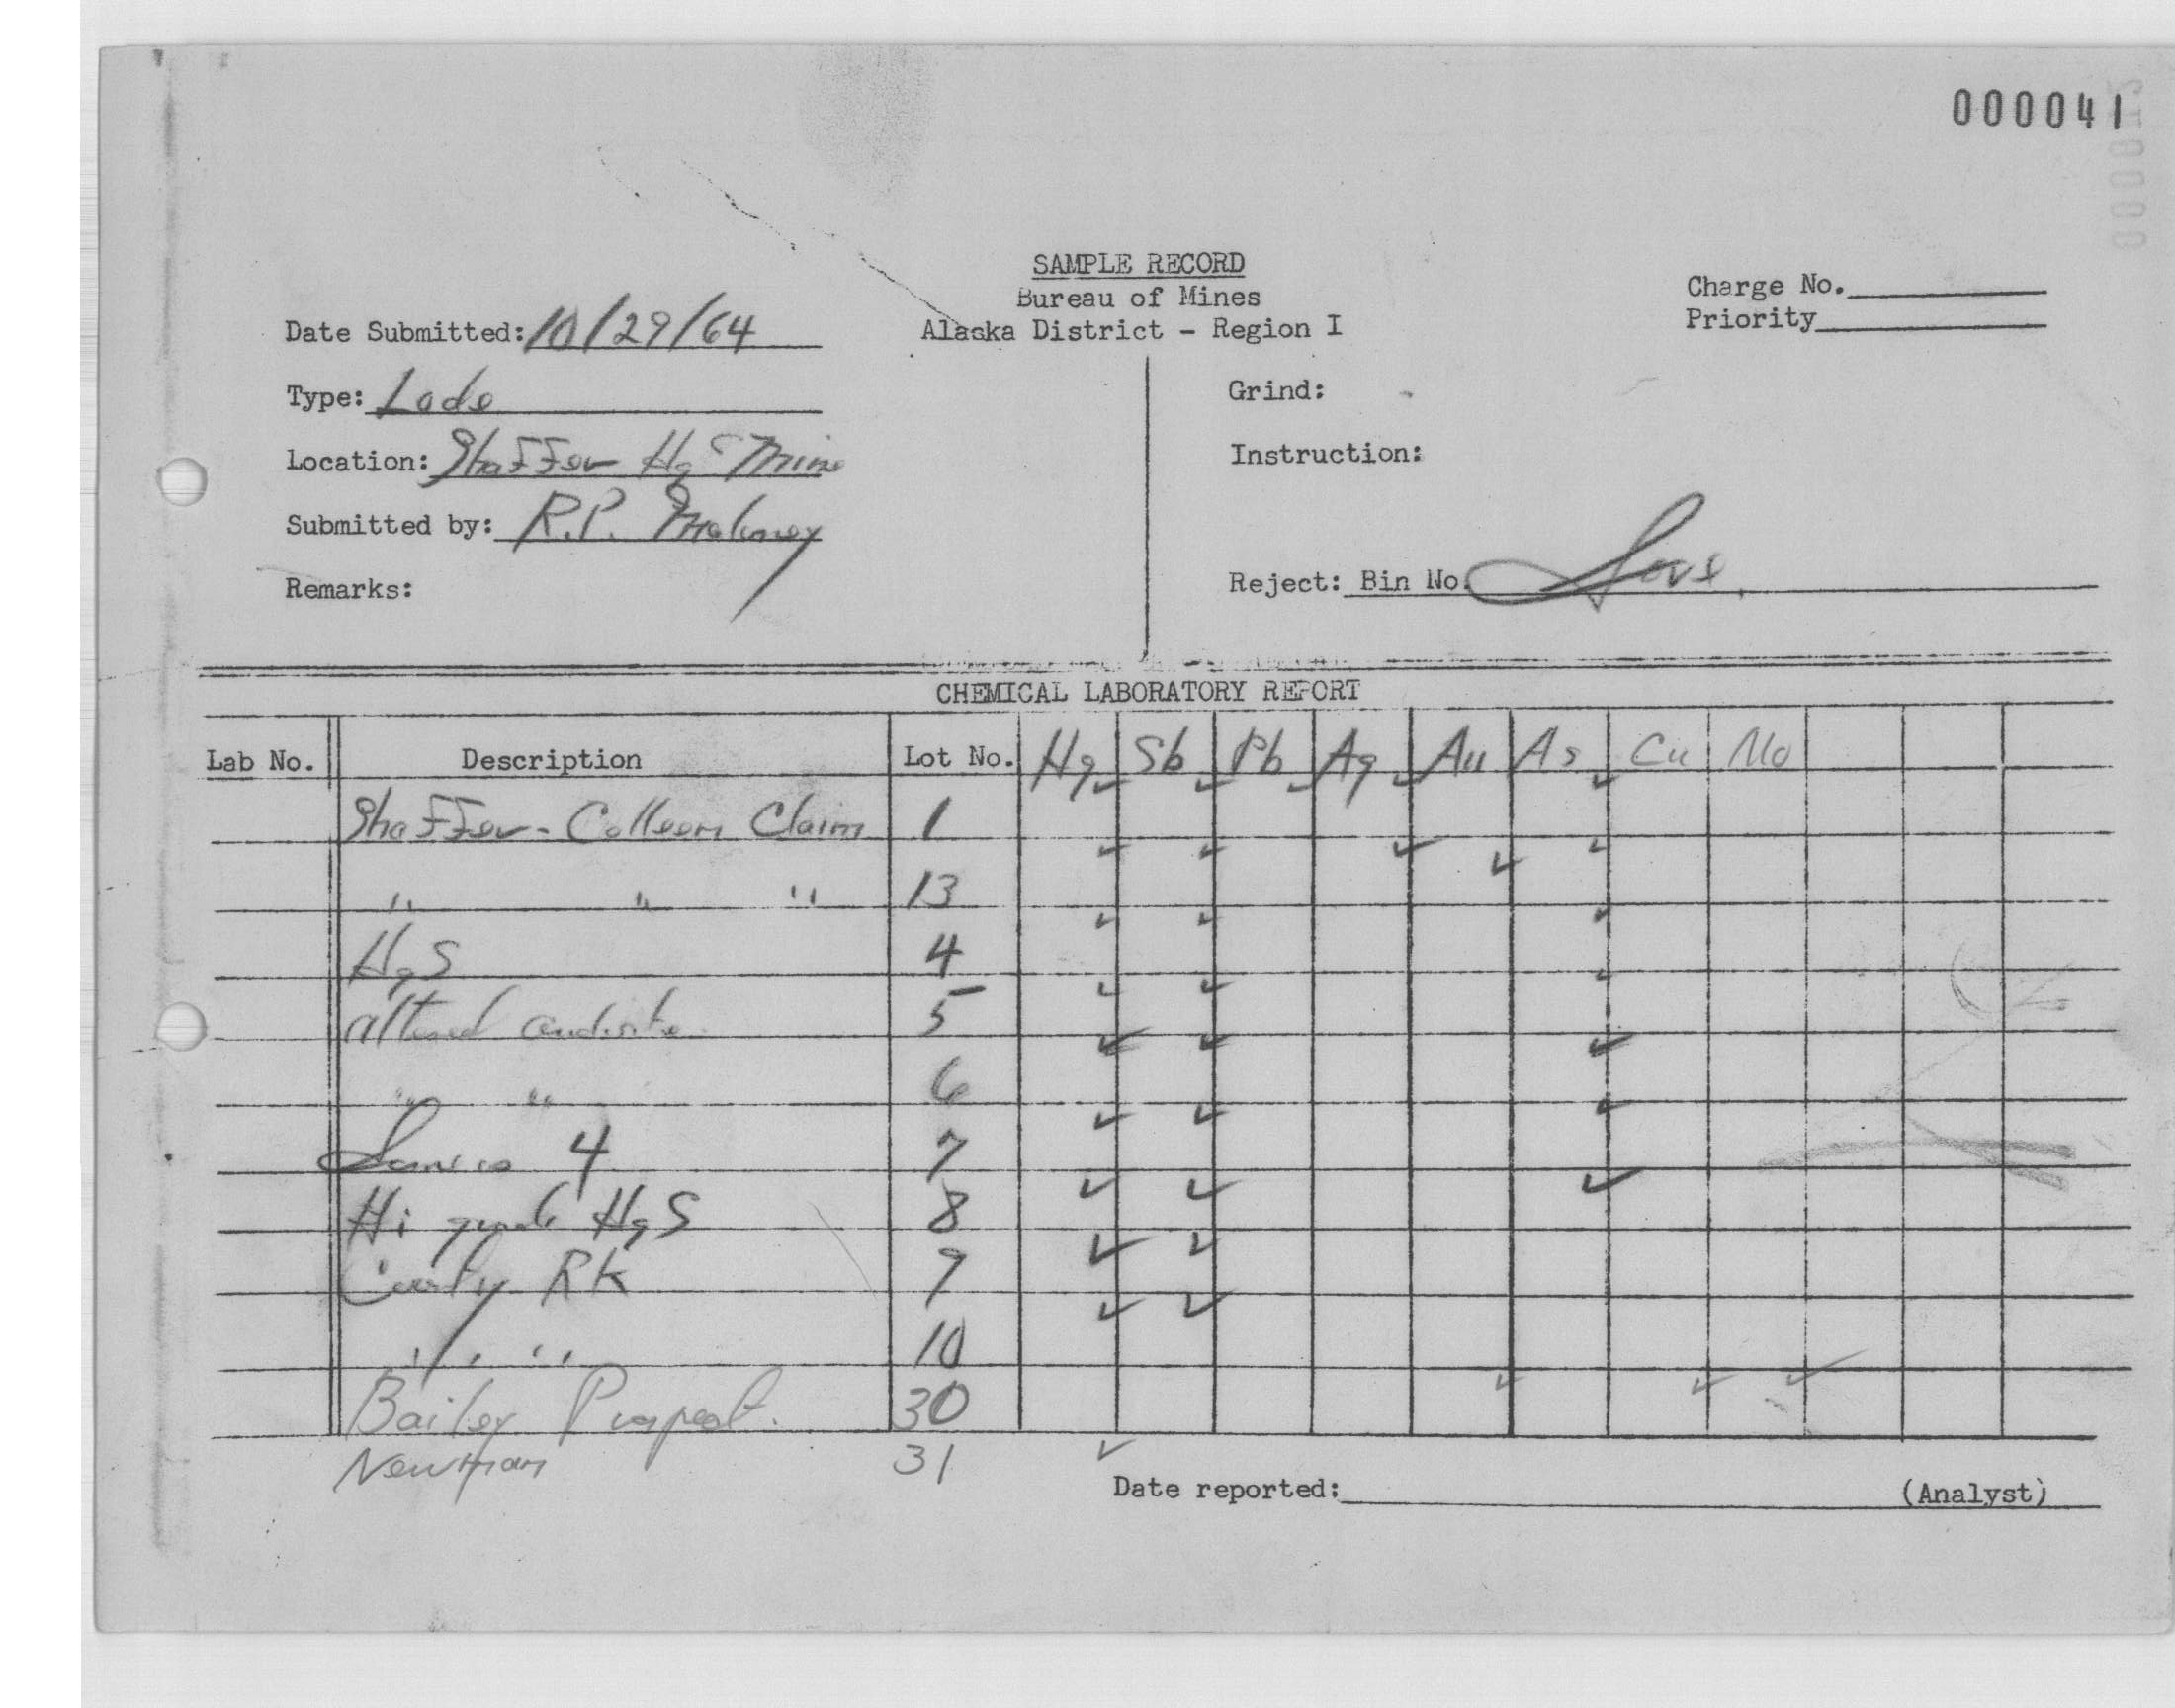 000041
SAMPLE RECORD
Bureau of Mines
Alaska District - Region I
Charge No.
Priority
Date Submitted: 10/29/64
Type: Lode
Location: Shaffer Hg Mine
Submitted by: R.P. Maloney
Remarks:
Grind:
Instruction:
Reject: Bin No. Save
CHEMICAL LABORATORY REPORT
Lab No. Description Lot No. Hg Sb Pb Ag Au As Cu Mo
Shaffer - Colleen Claim 1 ✓ ✓ ✓ ✓ ✓
" " " 13 ✓ ✓ ✓ ✓ ✓
HgS 4 ✓ ✓ ✓
altered andisite 5 ✓ ✓ ✓
" " 6 ✓ ✓ ✓
Same as 4 7 ✓ ✓ ✓
Hi grade HgS 8 ✓ ✓ ✓
Country RK 9 ✓ ✓
" " 10 ✓ ✓
Bailey Prospect. 30 ✓ ✓ ✓
Newman 31 ✓
Date reported: (Analyst)